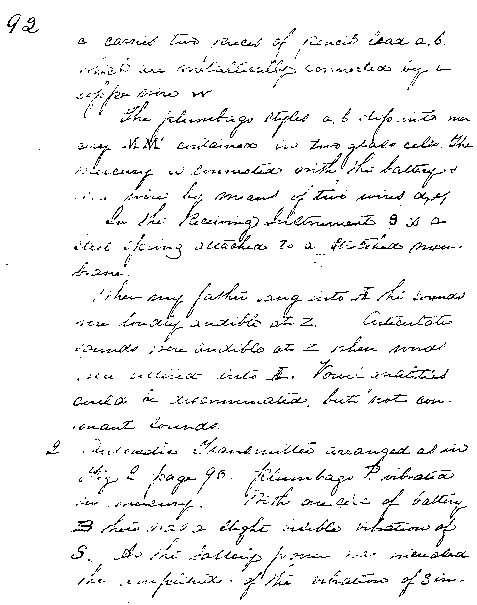 92
c carries two pieces of pencil lead a. b.
which are metallically connected by a
copper wire w
The plumbago styles a. b dip into mer
cury M M' contained in two glass cells. The
mercury is connected with the battery &
line wire by means of two wires d, e,
In the Receiving Instrument S is a
steel spring attached to a stretched mem-
brane.
When my father sang into the sounds
were loudly audible at Z. Articulate
sounds were audible at Z when words
were uttered into Vowel qualities
could be discriminated, but not con-
sonant sounds.
2 Transmitter arranged as in
Fig 2 page 90. Plumbago P. vibrated
in mercury. With one cell of battery
B there was a slight visible vibration of
S. As the battery power was increased
the amplitude of the vibration of S in-